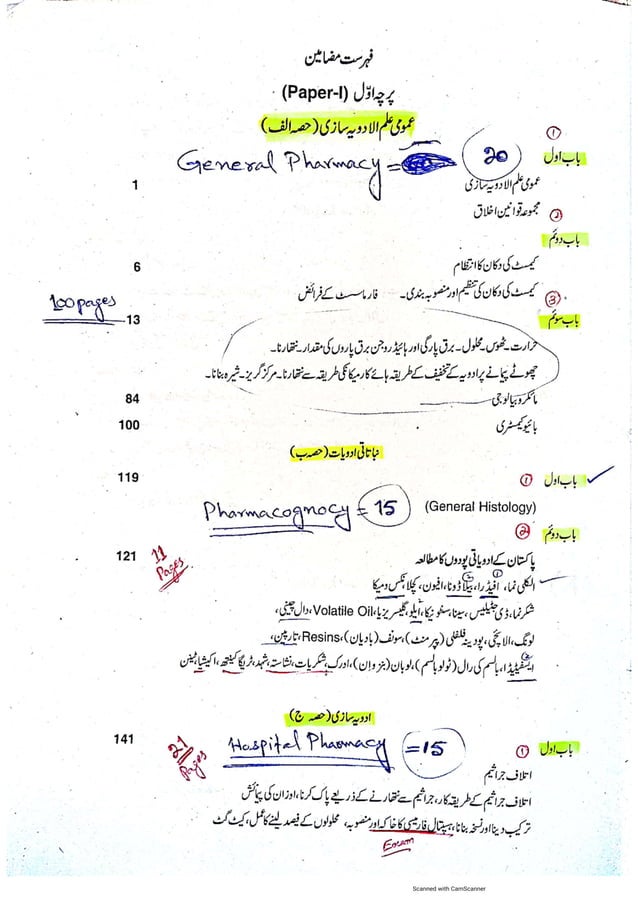 فہرست مضامین
پرچہ اوّل (Paper-I)
عمومی علم الادویہ سازی (حصہ الف)
①
باب اول
General Pharmacy = 20
عمومی علم الادویہ سازی 1
② مجموعہ قوانین اخلاق
باب دوئم
کیمسٹ کی دکان کا انتظام 6
کیمسٹ کی دکان کی تنظیم اور منصوبہ بندی۔ فارماسسٹ کے فرائض
③
100 pages
باب سوئم 13
حرارت۔ ٹھوس۔ محلول۔ برق پارگی اور ہائیڈروجن برق پاروں کی مقدار۔ نتھارنا۔
چھوٹے پیمانے پر ادویہ کے تخفیف کے طریقہ ہائے کار میکانکی طریقہ سے نتھارنا۔ مرکز گریز۔ شیرہ بنانا۔
مائکروبیالوجی 84
بائیو کیمسٹری 100
نباتاتی ادویات (حصہ ب)
باب اول ① 119
Pharmacognocy = 15
(General Histology)
باب دوئم ②
پاکستان کے ادویاتی پودوں کا مطالعہ 121
11 Pages
الکلی نما، افیڈرا، بیلا ڈونا، افیون، کچلا نکس ومیکا
شکرنما، ڈی جٹیلیس، سینا، سنٹونیکا، ایلو، گلیسریزیا، Volatile Oil، دال چینی،
لونگ، الائچی، پودینہ فلفلی (پیپرمنٹ)، سونف (بادیان)، Resins، تارپین،
ایسفیٹیڈا، بالسم کی رال (ٹولو بالسم)، لوبان (بنزوان)، ادرک، شکریات، نشاستہ، شہد، ٹریگا کینتھ، اکیشیا، جیلٹین
ادویہ سازی (حصہ ج)
باب اول ① 141
Hospital Pharmacy = 15
21 Pages
اتلاف جراثیم
اتلاف جراثیم کے طریقہ کار، جراثیم سے نتھارنے کے ذریعے پاک کرنا، اوزان کی پیمائش
ترکیب دینا اور نسخہ بنانا، ہسپتال فارمیسی کا خاکہ اور منصوبہ، محلولوں کے فیصد لینے کا عمل، کیٹ گٹ
Exam
Scanned with CamScanner